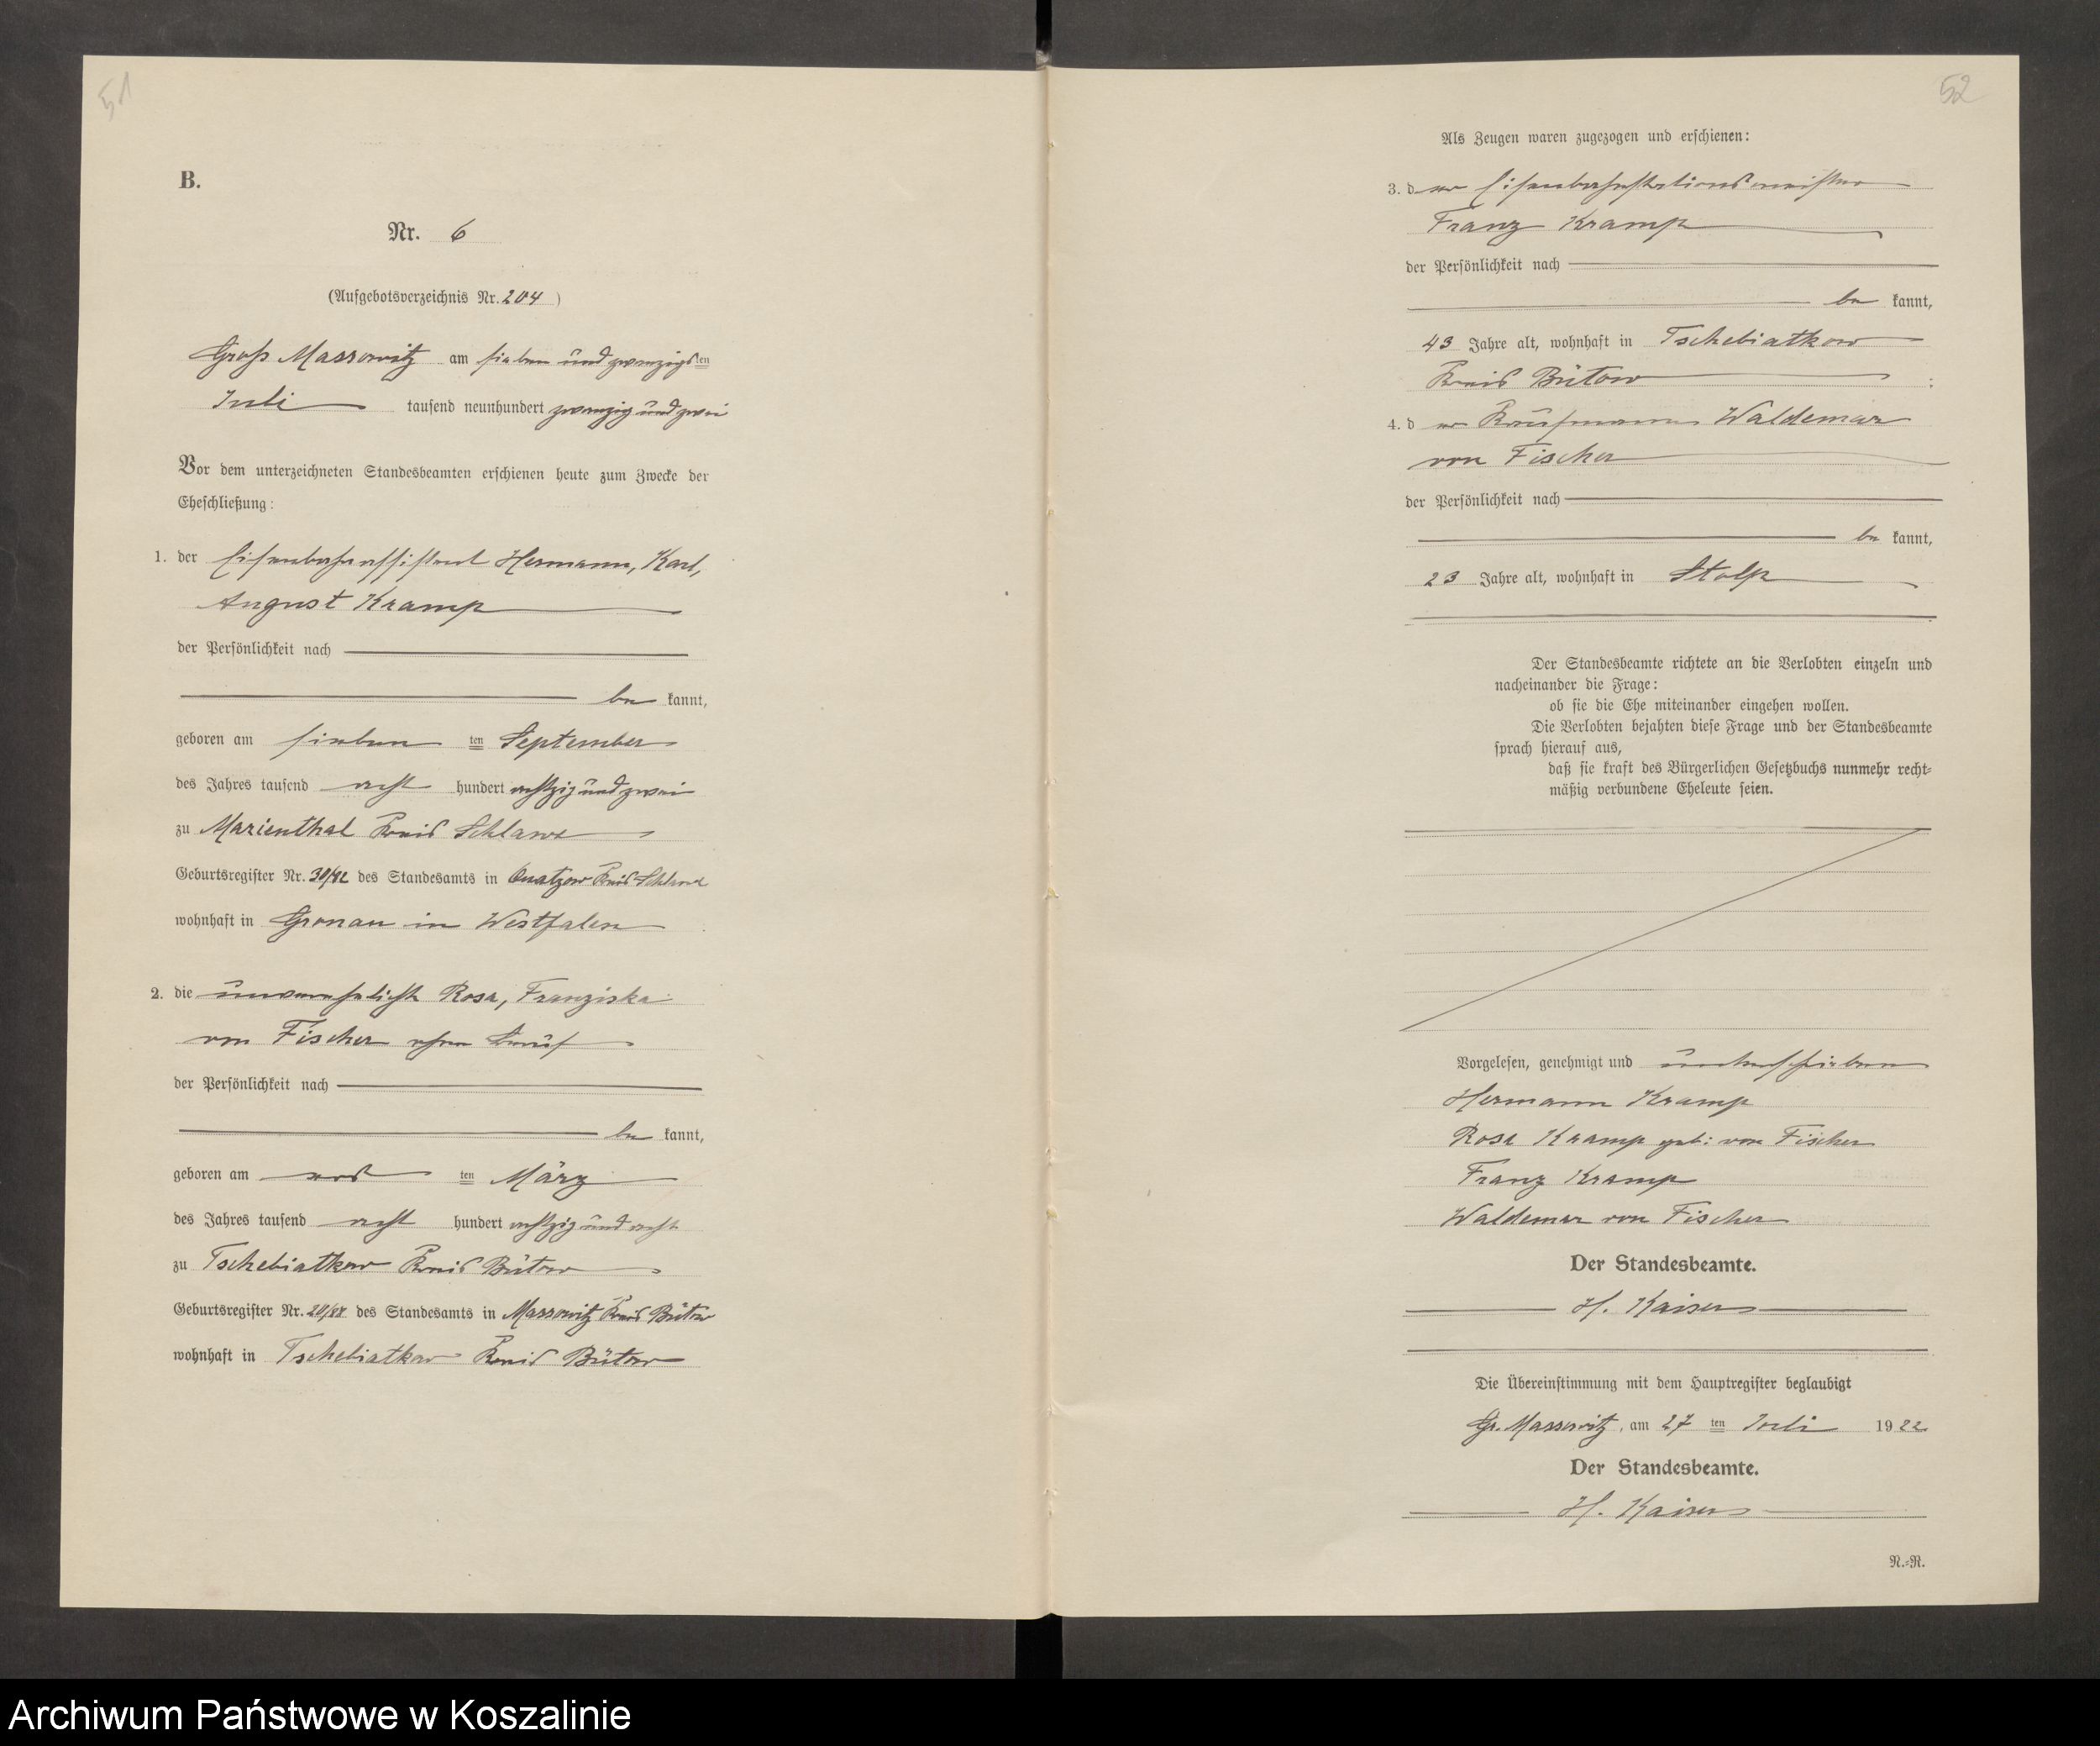 51
B.
Nr. 6
(Aufgebotsverzeichnis Nr. 204)
Groß Massowitz am sieben und zwanzigsten
Juli tausend neunhundert zwanzig und zwei
Vor dem unterzeichneten Standesbeamten erschienen heute zum Zwecke der
Eheschließung:
1. der Eisenbahnassistent Hermann, Karl,
August Kramp
der Persönlichkeit nach
be kannt,
geboren am sieben ten September
des Jahres tausend acht hundert achtzig und zwei
zu Marienthal Kreis Schlawe
Geburtsregister Nr. 30/82 des Standesamts in Quatzow Kreis Schlawe
wohnhaft in Gronau in Westfalen
2. die unverehelichte Rosa, Franziska
von Fischer ohne Beruf
der Persönlichkeit nach
be kannt,
geboren am ten März
des Jahres tausend acht hundert achtzig und acht
zu Tschebiatkow Kreis Bütow
Geburtsregister Nr. 20/88 des Standesamts in Massowitz Kreis Bütow
wohnhaft in Tschebiatkow Kreis Bütow
52
Als Zeugen waren zugezogen und erschienen:
3. d er Eisenbahnstationsmeister
Franz Kramp
der Persönlichkeit nach
be kannt,
43 Jahre alt, wohnhaft in Tschebiatkow
Kreis Bütow :
4. d er Kaufmann Waldemar
von Fischer
der Persönlichkeit nach
be kannt,
23 Jahre alt, wohnhaft in Stolp
Der Standesbeamte richtete an die Verlobten einzeln und
nacheinander die Frage:
ob sie die Ehe miteinander eingehen wollen.
Die Verlobten bejahten diese Frage und der Standesbeamte
sprach hierauf aus,
daß sie kraft des Bürgerlichen Gesetzbuchs nunmehr recht-
mäßig verbundene Eheleute seien.
Vorgelesen, genehmigt und unterschrieben
Hermann Kramp
Rosa Kramp geb: von Fischer
Franz Kramp
Waldemar von Fischer
Der Standesbeamte.
H. Kaiser
Die Übereinstimmung mit dem Hauptregister beglaubigt
Gr. Massowitz, am 27 ten Juli 1922
Der Standesbeamte.
H. Kaiser
N.-R.
Archiwum Państwowe w Koszalinie